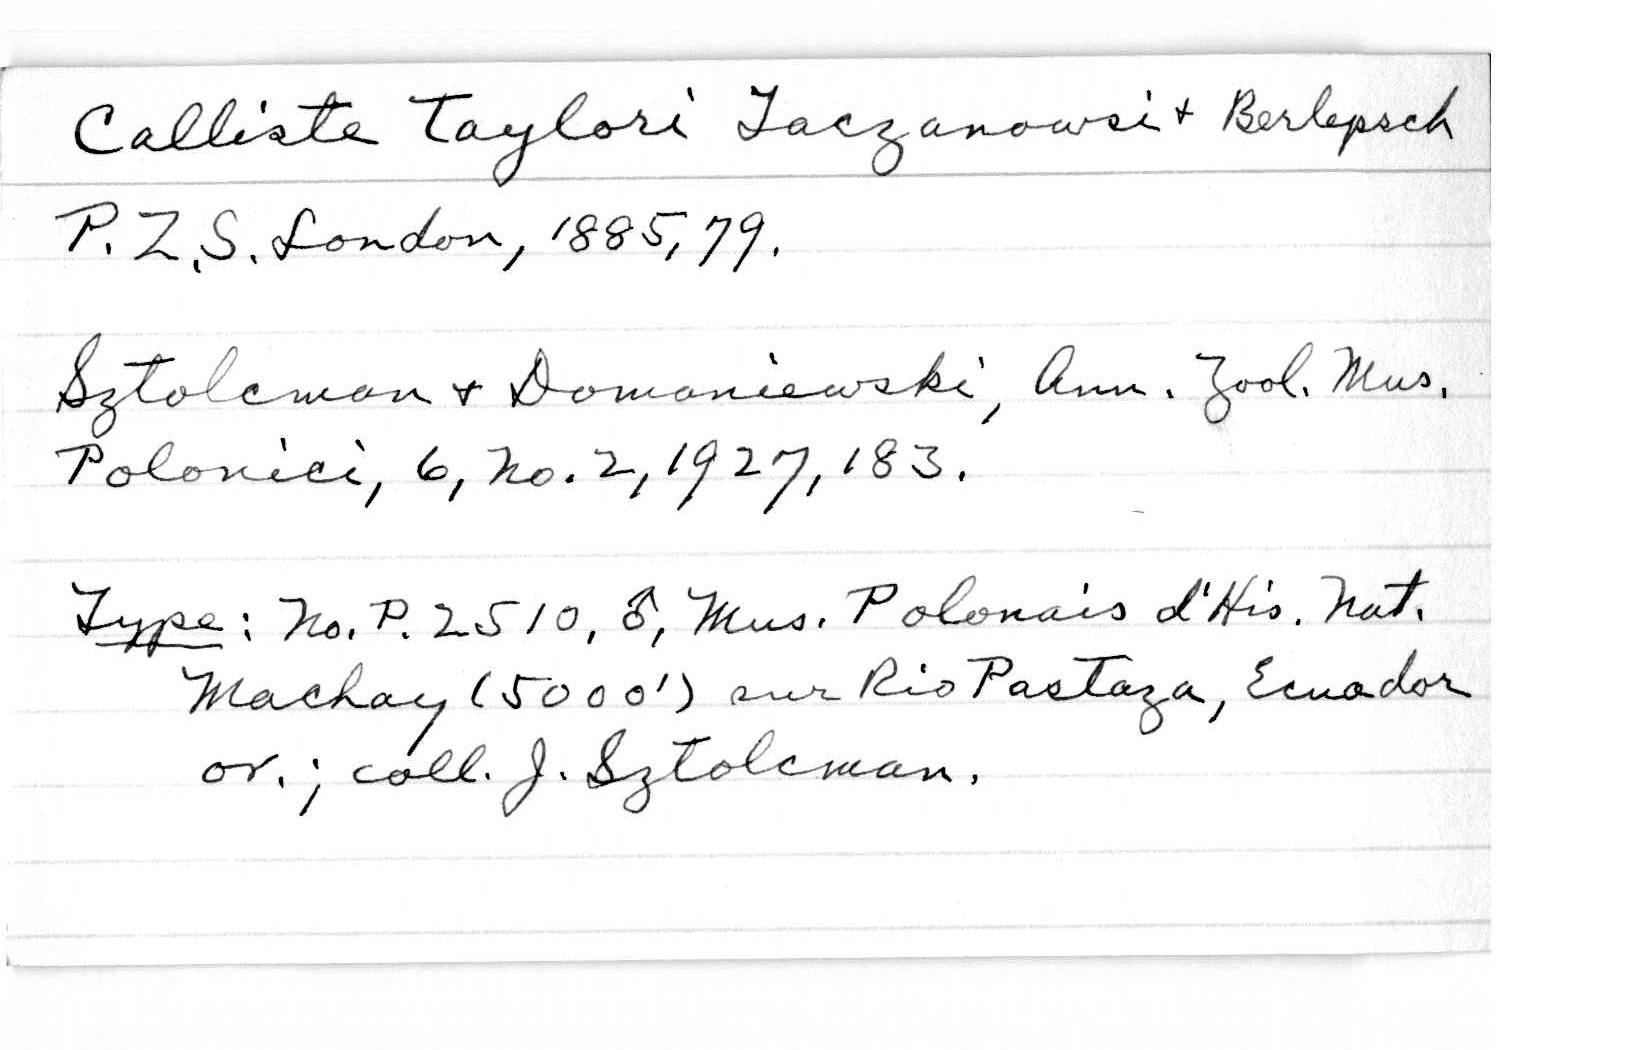 Calliste Taylori Taczanowsi + Berlepsch
P.Z.S. London, 1885, 79.
Sztolcman + Domaniewski, Ann. Zool. Mus.
Polonici, 6, No. 2, 1927, 183.
Type: No. P. 2510, ♂, Mus. Polonais d'His. Nat.
Machay (5000') sur Rio Pastaza, Ecuador
or.; coll. J. Sztolcman.